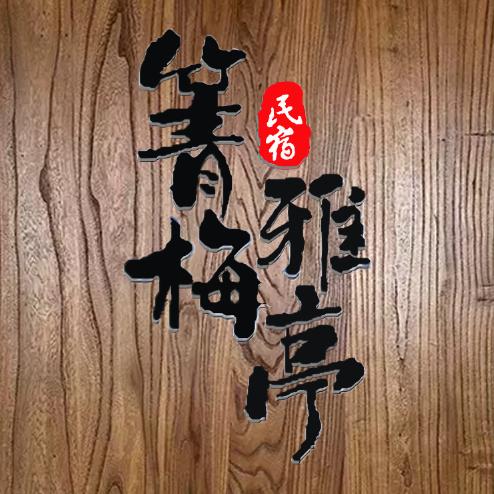 箐梅
雅亭
民宿